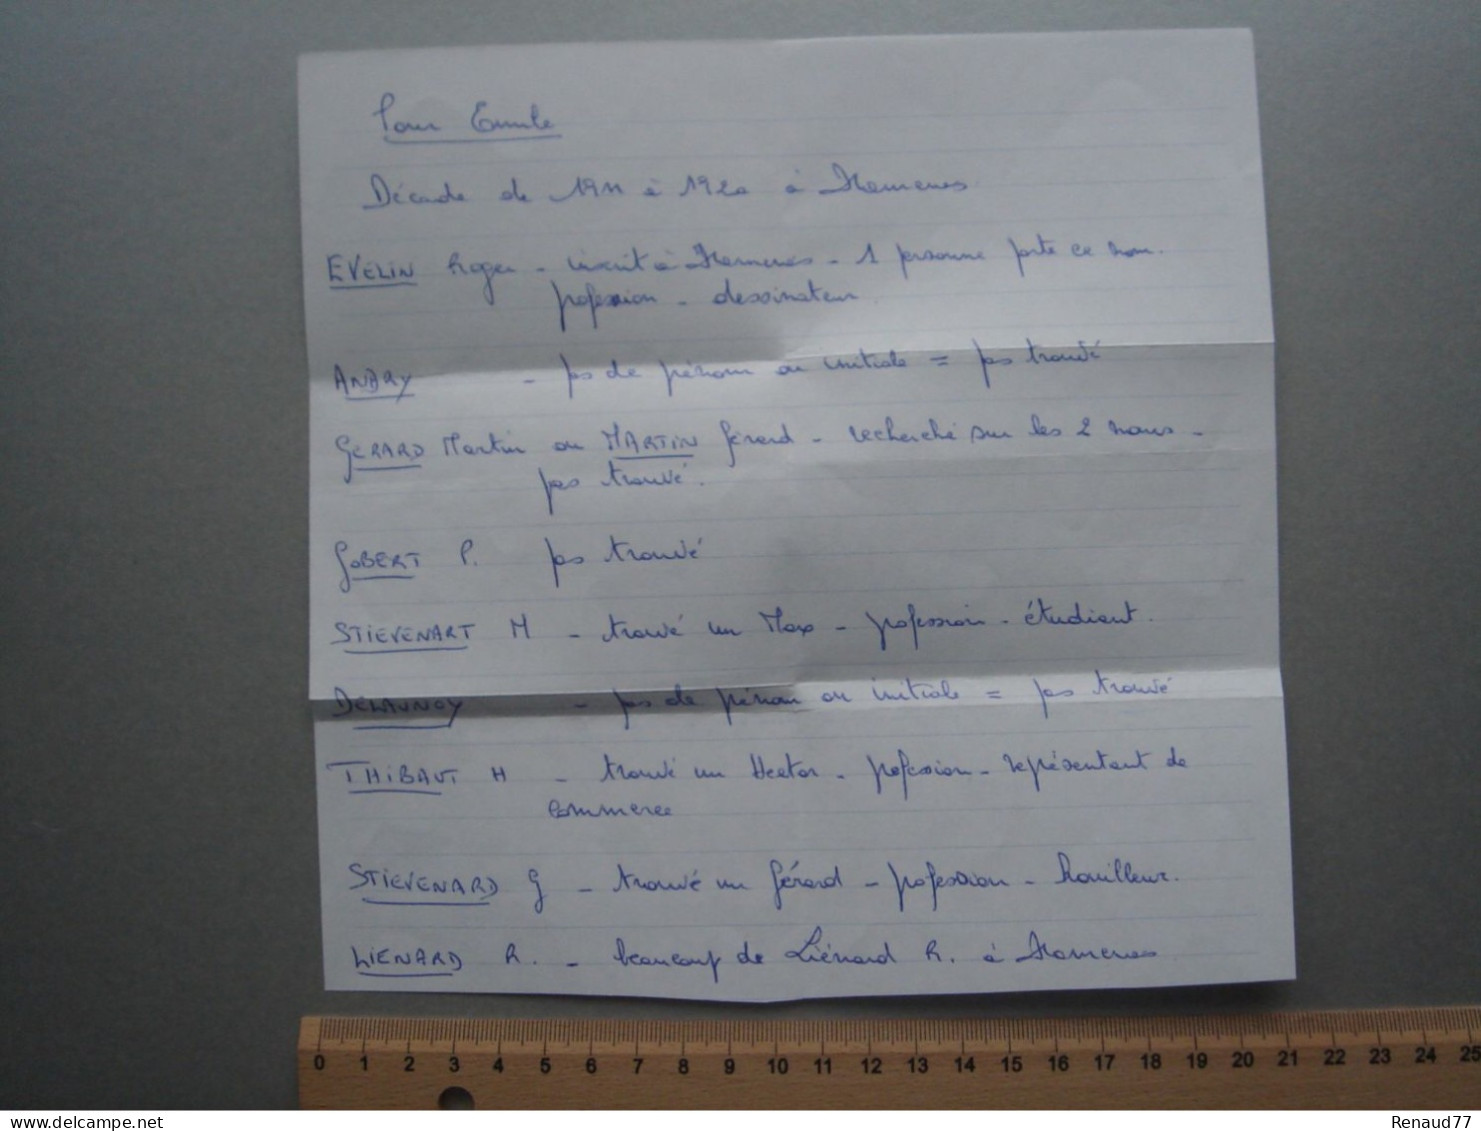 Pour Emile
Décade de 1911 à 1920 à
EVELIN Roger - inscrit à - 1 personne porte ce nom.
profession - dessinateur
ANDRY - pas de prénom ou initiale = pas trouvé
GERARD Martin ou MARTIN Gérard - recherché sur les 2 noms -
pas trouvé.
GOBERT P. pas trouvé
STIEVENART M - trouvé un Max - profession - étudiant.
DELAUNOY - pas de prénom ou initiale = pas trouvé
THIBAUT H - trouvé un Hector - profession - représentant de
commerce
STIEVENARD G - trouvé un Gérard - profession - Houilleur.
LIENARD R. - beaucoup de Liénard R. à
0 1 2 3 4 5 6 7 8 9 10 11 12 13 14 15 16 17 18 19 20 21 22 23 24 25
www.delcampe.net
Renaud77